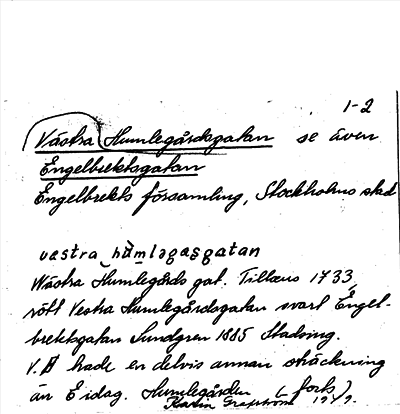 1-2
Västra Humlegårdsgatan se även
Engelbrektsgatan
Engelbrekts församling, Stockholms stad
västra hɯmləgasgatan
Wästra Humlegårds gat. Tillæus 1733,
nött Vestra Humlegårdsgatan svart Engel-
brektsgatan Lundgren 1885 Stadsing.
V. H hade en delvis annan sträckning
än E idag. Humlegården (forts).
Karin 1979.